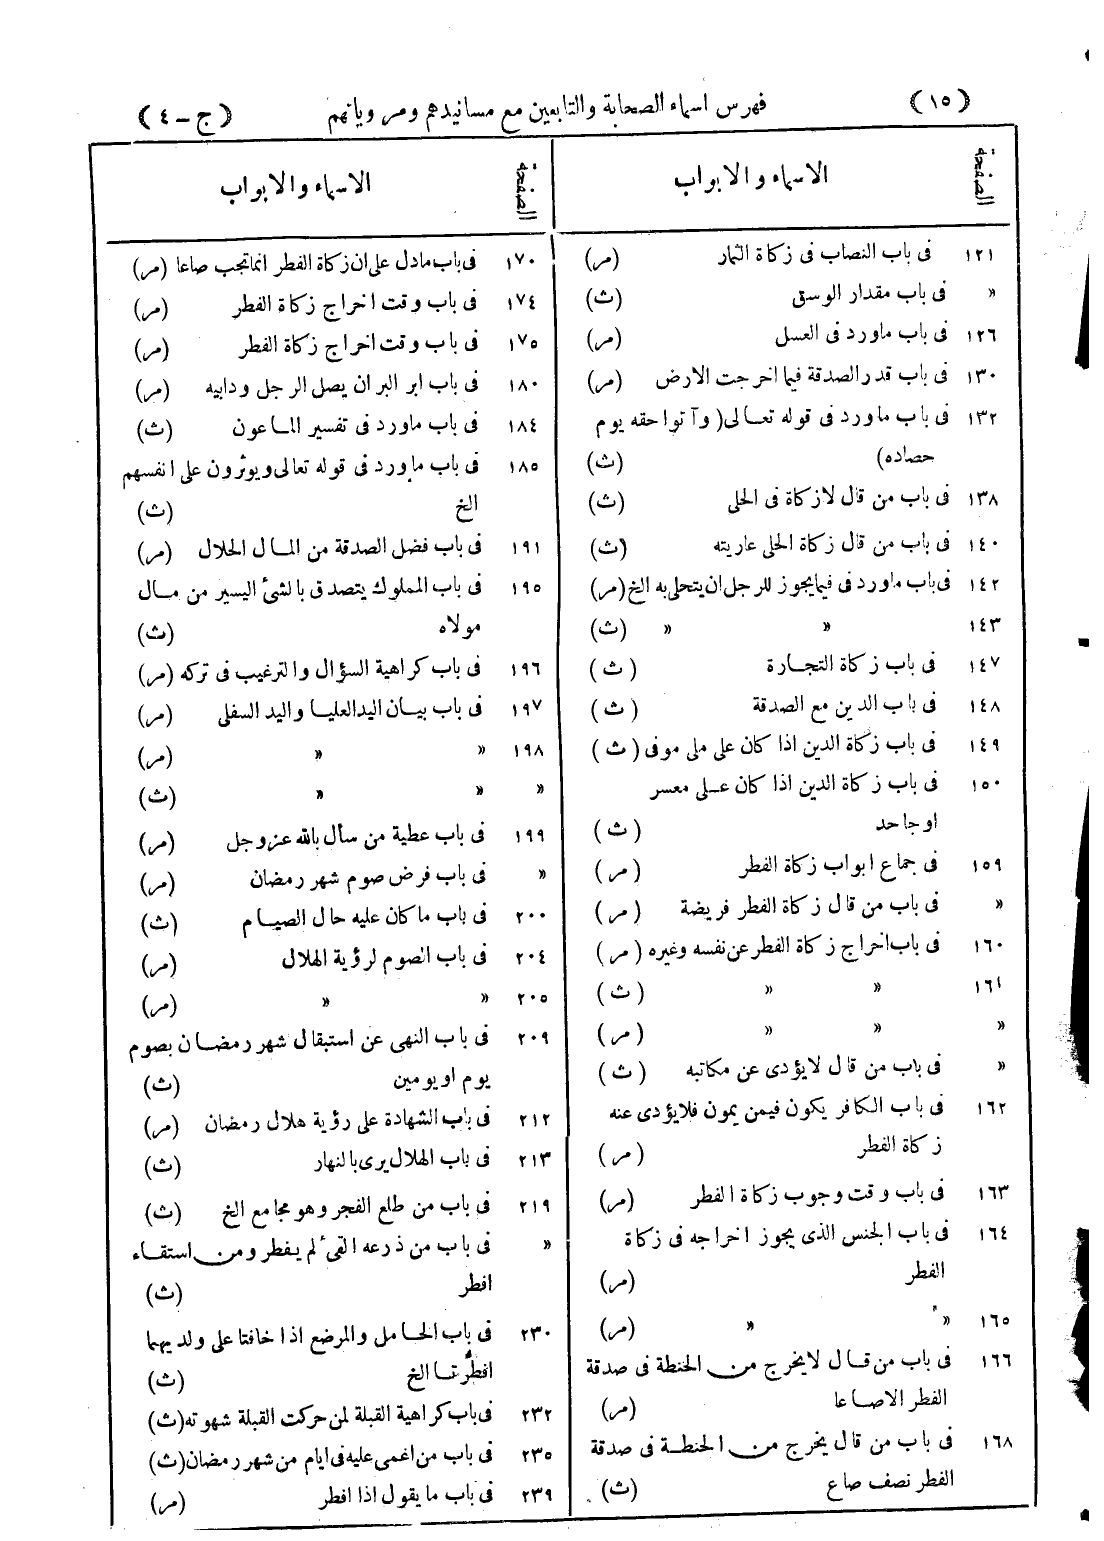 (١٥) فهرس اسماء الصحابة والتابعين مع مسانيدهم ومروياتهم (ج - ٤)
الصفحة الاسماء والابواب
١٢١ فى باب النصاب فى زكاة الثمار (مر)
« فى باب مقدار الوسق (ث)
١٢٦ فى باب ماورد فى العسل (مر)
١٣٠ فى باب قدر الصدقة فيما اخرجت الارض (مر)
١٣٢ فى باب ماورد فى قوله تعالى (وآتوا حقه يوم
حصاده) (ث)
١٣٨ فى باب من قال لازكاة فى الحلى (ث)
١٤٠ فى باب من قال زكاة الحلى عاريته (ث)
١٤٢ فى باب ماورد فى فيما يجوز للرجل ان يتحلى به الخ (مر)
١٤٣ « « (ث)
١٤٧ فى باب زكاة التجارة (ث)
١٤٨ فى باب الدين مع الصدقة (ث)
١٤٩ فى باب زكاة الدين اذا كان على ملى موفى (ث)
١٥٠ فى باب زكاة الدين اذا كان عـلى معسر
اوجاحد (ث)
١٥٩ فى جماع ابواب زكاة الفطر (مر)
« فى باب من قال زكاة الفطر فريضة (مر)
١٦٠ فى باب اخراج زكاة الفطر عن نفسه وغيره (مر)
١٦١ « « (ث)
« « « (مر)
« فى باب من قال لايؤدى عن مكاتبه (ث)
١٦٢ فى باب الكافر يكون فيمن يمون فلايؤدى عنه
زكاة الفطر (مر)
١٦٣ فى باب وقت وجوب زكاة الفطر (مر)
١٦٤ فى باب الجنس الذى يجوز اخراجه فى زكاة
الفطر (مر)
١٦٥ « « (مر)
١٦٦ فى باب من قـال لايخرج من الحنطة فى صدقة
الفطر الاصـاعا (مر)
١٦٨ فى باب من قال يخرج من الحنطـة فى صدقة
الفطر نصف صاع (ث)
الصفحة الاسماء والابواب
١٧٠ فى باب مادل على ان زكاة الفطر انماتجب صاعا (مر)
١٧٤ فى باب وقت اخراج زكاة الفطر (مر)
١٧٥ فى باب وقت اخراج زكاة الفطر (مر)
١٨٠ فى باب ابر البر ان يصل الرجل ودابيه (مر)
١٨٤ فى باب ماورد فى تفسير الماعون (ث)
١٨٥ فى باب ماورد فى قوله تعالى ويوثرون على انفسهم
الخ (ث)
١٩١ فى باب فضل الصدقة من المـال الحلال (مر)
١٩٥ فى باب المملوك يتصدق بالشئ اليسير من مـال
مولاه (ث)
١٩٦ فى باب كراهية السؤال والترغيب فى تركه (مر)
١٩٧ فى باب بيـان اليد العليـا واليد السفلى (مر)
١٩٨ « « (مر)
« « « (ث)
١٩٩ فى باب عطية من سأل بالله عزوجل (مر)
« فى باب فرض صوم شهر رمضان (مر)
٢٠٠ فى باب ماكان عليه حال الصيـام (ث)
٢٠٤ فى باب الصوم لرؤية الهلال (مر)
٢٠٥ « « (مر)
٢٠٩ فى باب النهى عن استبقال شهر رمضـان بصوم
يوم اويومين (ث)
٢١٢ فى باب الشهادة على رؤية هلال رمضان (مر)
٢١٣ فى باب الهلال يرى بالنهار (ث)
٢١٩ فى باب من طلع الفجر وهو مجامع الخ (ث)
« فى باب من ذرعه القىء لم يفطر ومن استقـاء
افطر (ث)
٢٣٠ فى باب الحامل والمرضع اذا خافتا على ولديهما
افطرتـا الخ (ث)
٢٣٢ فى باب كراهية القبلة لمن حركت القبلة شهوته (ث)
٢٣٥ فى باب من اغمى عليه فى ايام من شهر رمضان (ث)
٢٣٩ فى باب مايقول اذا افطر (مر)